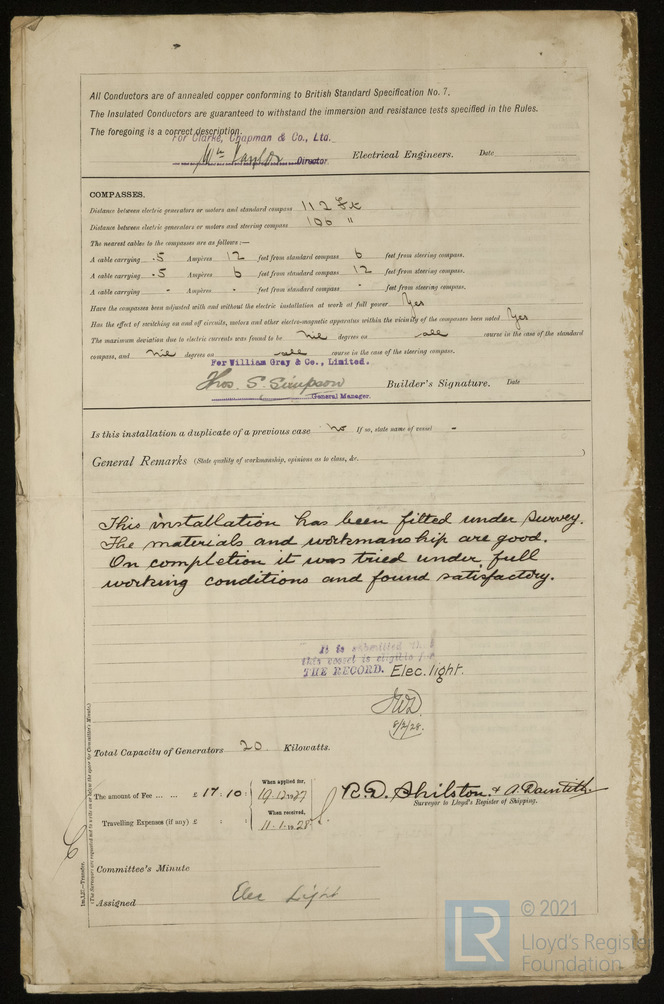 All Conductors are of annealed copper conforming to British Standard Specification No. 7.
The Insulated Conductors are guaranteed to withstand the immersion and resistance tests specified in the Rules.
The foregoing is a correct description.
For Clarke, Chapman & Co., Ltd.
Wm Taylor Director. Electrical Engineers. Date
COMPASSES.
Distance between electric generators or motors and standard compass 112 Ft
Distance between electric generators or motors and steering compass 106 "
The nearest cables to the compasses are as follows :—
A cable carrying .5 Ampères 12 feet from standard compass 6 feet from steering compass.
A cable carrying .5 Ampères 6 feet from standard compass 12 feet from steering compass.
A cable carrying - Ampères - feet from standard compass - feet from steering compass.
Have the compasses been adjusted with and without the electric installation at work at full power Yes
Has the effect of switching on and off circuits, motors and other electro-magnetic apparatus within the vicinity of the compasses been noted Yes
The maximum deviation due to electric currents was found to be nil degrees on all course in the case of the standard
compass, and nil degrees on all course in the case of the steering compass.
For William Gray & Co., Limited.
Thos. S. Simpson Builder's Signature. Date
General Manager.
Is this installation a duplicate of a previous case No If so, state name of vessel -
General Remarks (State quality of workmanship, opinions as to class, &c. )
This installation has been fitted under survey.
The materials and workmanship are good.
On completion it was tried under full
working conditions and found satisfactory.
It is submitted that
this vessel is eligible for
THE RECORD. Elec. light.
8/2/28.
Total Capacity of Generators 20 Kilowatts.
The amount of Fee ... ... £ 17 : 10 : When applied for, 19.12.1927
R.D. Shilston & A. Dainteth
Surveyor to Lloyd's Register of Shipping.
Travelling Expenses (if any) £ : : When received, 11.1.1928
Committee's Minute
Assigned Elec Light
1m,1,27.—Transfer.
(The Surveyors are requested not to write on or below the space for Committee's Minute.)
LR
© 2021
Lloyd's Register
Foundation